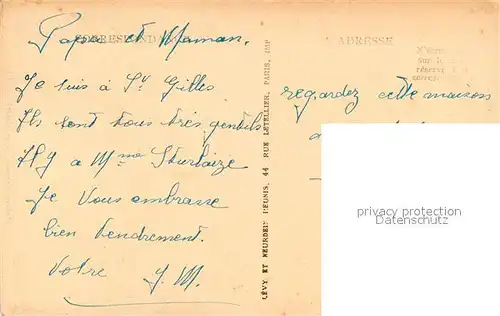 CORRESPONDANCE
Papa et Maman.
Je suis à St Gilles
Ils sont tous très gentils
Il y a Mme
Je vous embrasse
bien tendrement.
Votre J. M.
LÉVY ET NEURDEIN RÉUNIS, 44 RUE LETELLIER, PARIS, IMP
ADRESSE
regardez cette maison
privacy protection
Datenschutz